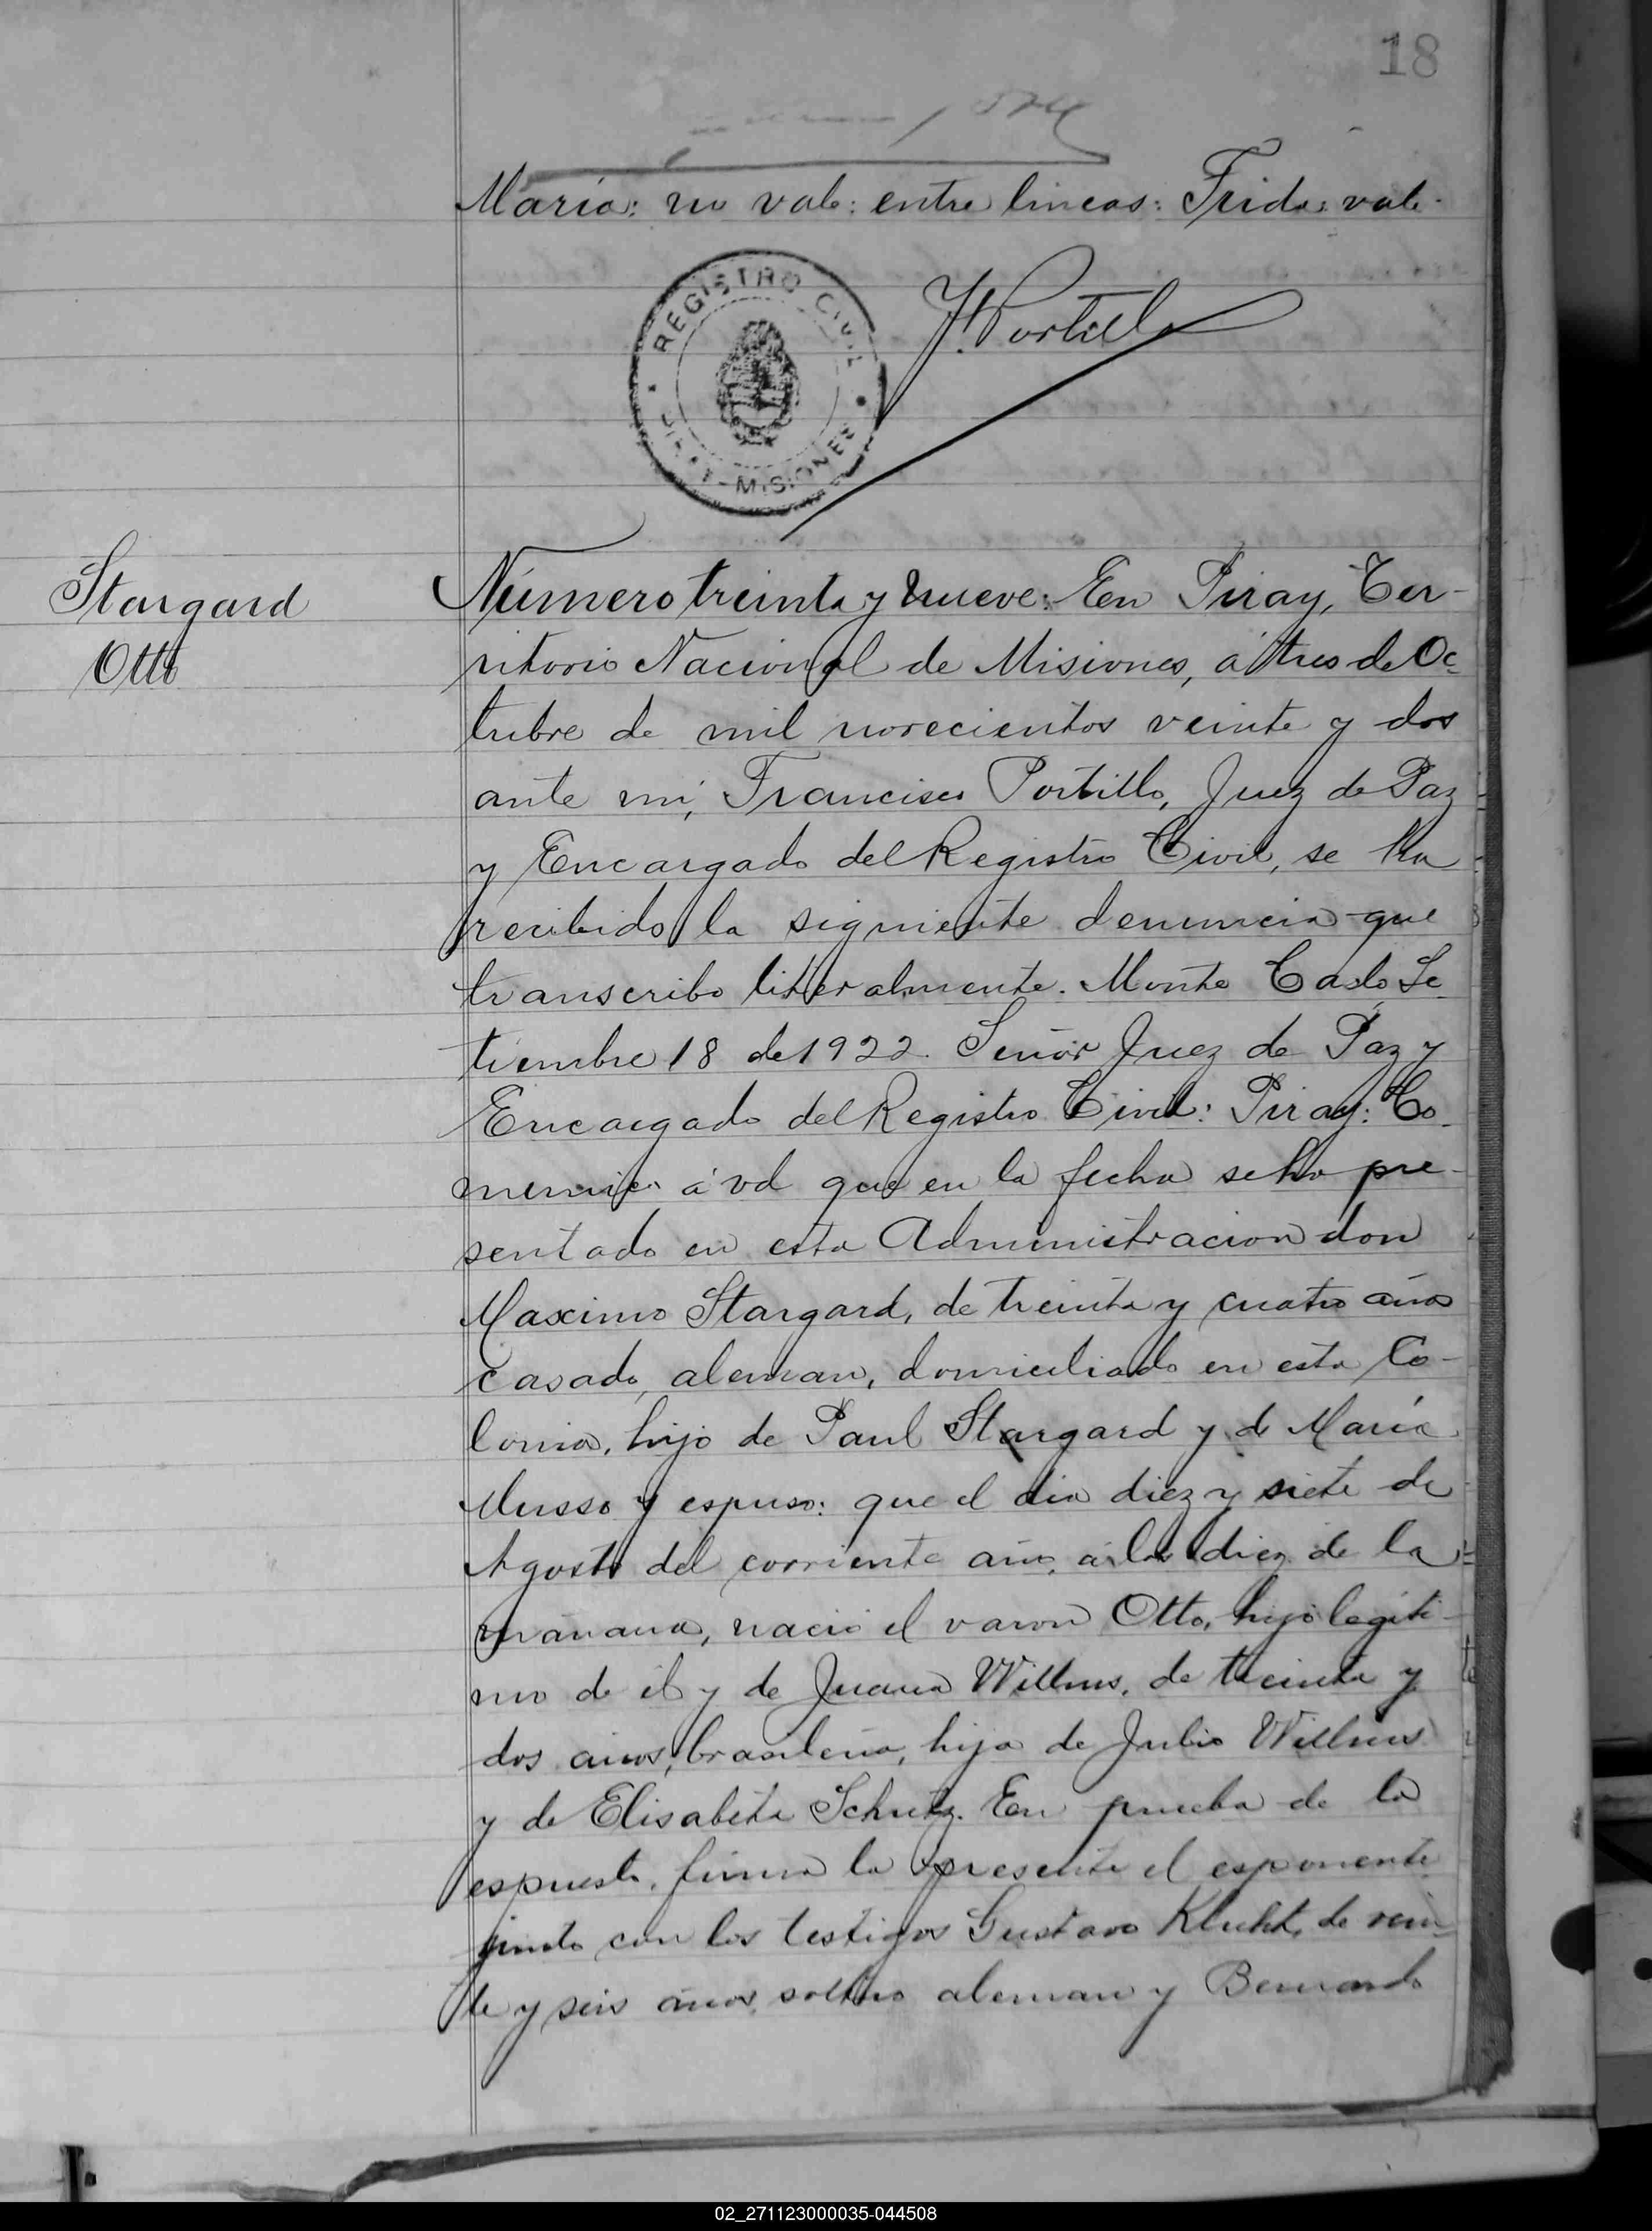 18
María: no vale: entre lineas: Frida: vale.
REGISTRO CIVIL
MISIONES
F. Portillo
Stargard
Otto
Número treinta y nueve: En Piray, Ter-
ritorio Nacional de Misiones, á tres de Oc-
tubre de mil novecientos veinte y dos
ante mi, Francisco Portillo, Juez de Paz
y Encargado del Registro Civil, se ha
recibido la siguiente denuncia que
transcribo literalmente. Monte Carlo Se-
tiembre 18 de 1922. Señor Juez de Paz y
Encargado del Registro Civil: Piray: Co-
munico á vd que en la fecha se ha pre-
sentado en esta Administracion don
Maximo Stargard, de treinta y cuatro años
casado, aleman, domiciliado en esta Co-
lonia, hijo de Paul Stargard y de María
Musso y espuso: que el dia diez y siete de
Agosto del corriente año, á las diez de la
mañana, nació el varon Otto, hijo legiti-
mo de él y de Juana Willms, de treinta y
dos años, brasileña, hija de Julio Willms
y de Elisabeta Schutz. En prueba de lo
espuesto, firma la presente el esponente
junto con los testigos Gustavo Kluht, de vein-
te y seis años, soltero aleman y Bernardo
02_271123000035-044508